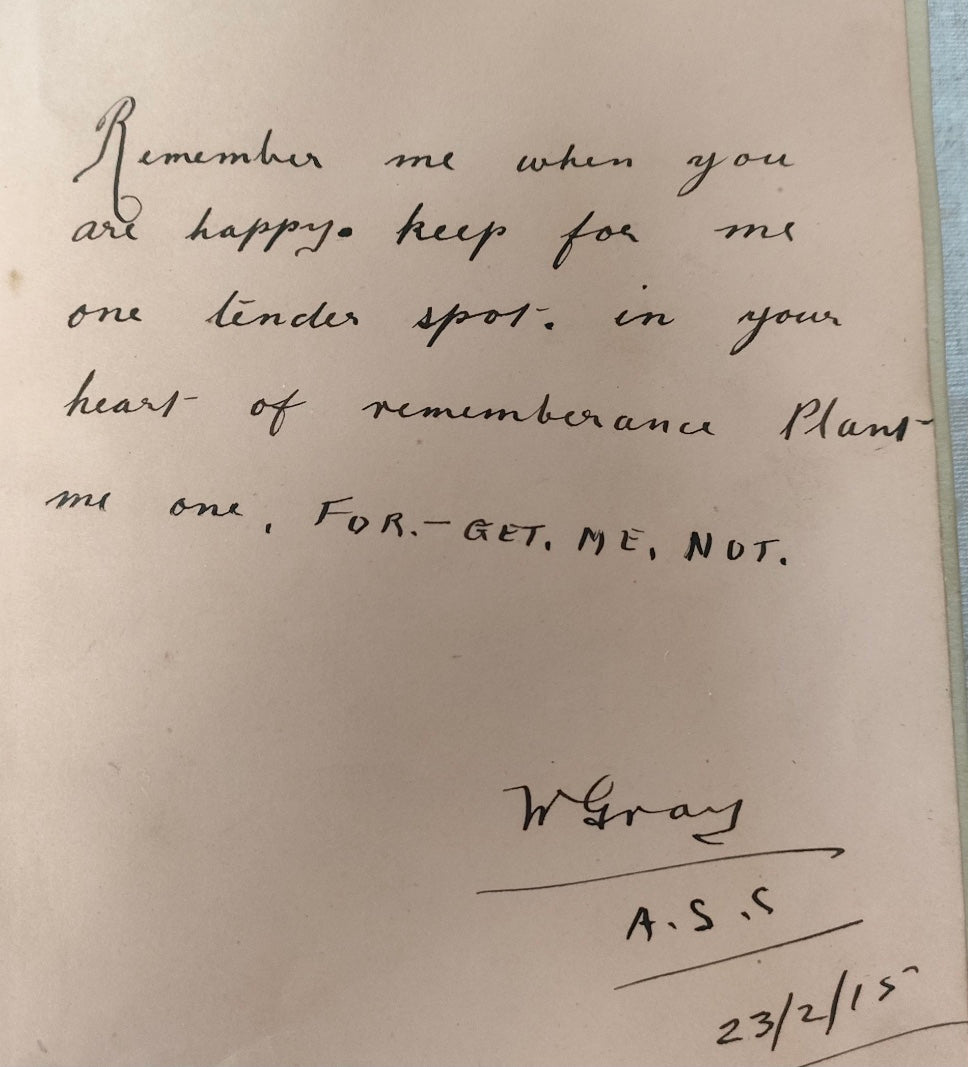 Remember me when you
are happy. keep for me
one tender spot. in your
heart of rememberance Plant
me one, FOR.-GET. ME, NOT.
W Gray
A.S.S
23/2/15